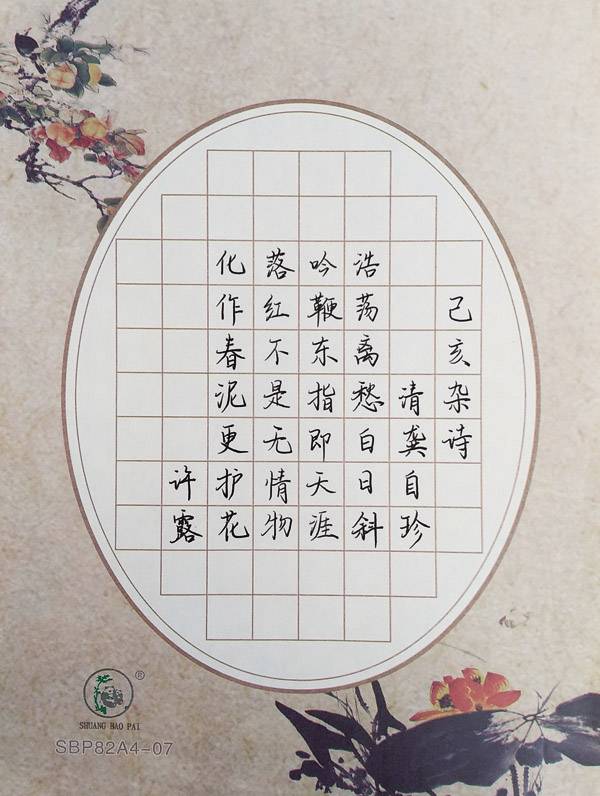 己亥杂诗
清龚自珍
浩荡离愁白日斜
吟鞭东指即天涯
落红不是无情物
化作春泥更护花
许露
SHUANG BAO PAI
®
SBP82A4-07